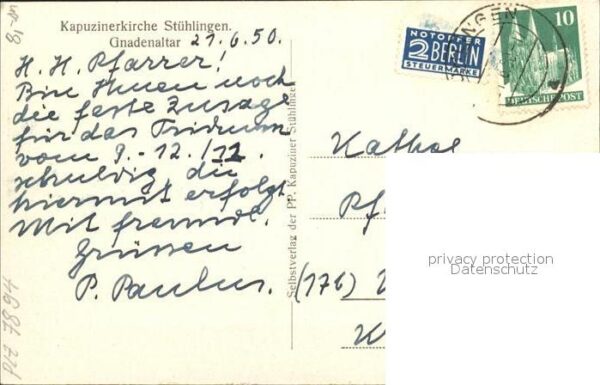 Kapuzinerkirche Stühlingen.
Gnadenaltar 21.6.50.
H. H. Pfarrer!
Bin Ihnen noch
die feste Zusage
für das Triduum
vom 9.-12./11.
schuldig die
hiermit erfolgt.
Mit freundl.
Grüssen
P. Paulus.
Selbstverlag der PP. Kapuziner Stühlingen
NOTOPFER
2 BERLIN
STEUERMARKE
INGEN
10
DEUTSCHE POST
Kathol.
Pf
(17b)
K
privacy protection
Datenschutz
PLZ 7894